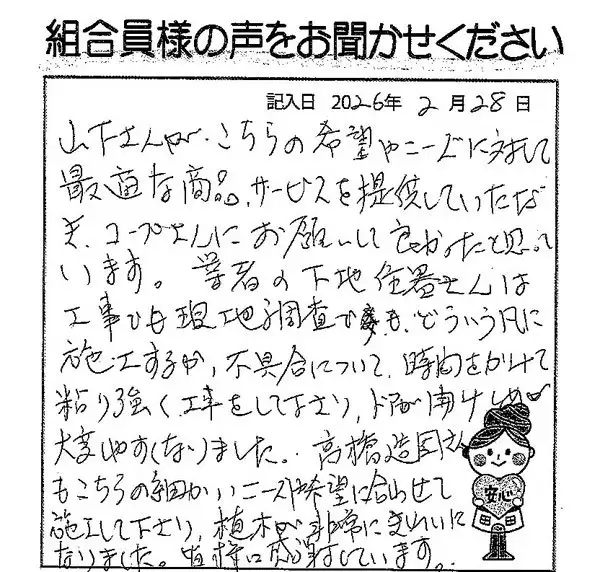 組合員様の声をお聞かせください
記入日 2026年 2月28日
山下さんが、こちらの希望やニーズに対して
最適な商品、サービスを提供していただ
き、コープさんにお願いして良かったと思って
います。業者の下地住器さんは
工事でも現地調査でも、どういう風に
施工するか、不具合について、時間をかけて
粘り強く工事をして下さり、ドアが開けしめ
大変しやすくなりました。高橋造園さん
もこちらの細かいニーズや希望に合わせて
施工して下さり、植木が非常にきれいに
なりました。皆様に感謝しています。
安心